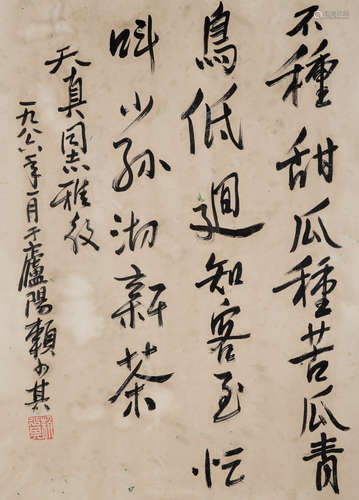 不種甜瓜種苦瓜青
鳥低迴知客至忙
叫小孫沏新茶
天真同志雅教
一九八六年一月于廬陽賴少其